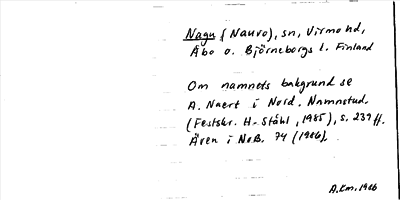 Nagu (Nauvo), sn, Virmo hd,
Åbo o. Björneborgs l. Finland
Om namnets bakgrund se
A. Naert i Nord. Namnstud.
(Festskr. H. Ståhl, 1985), s. 239 ff.
Även i NoB. 74 (1986).
A.Em. 1986